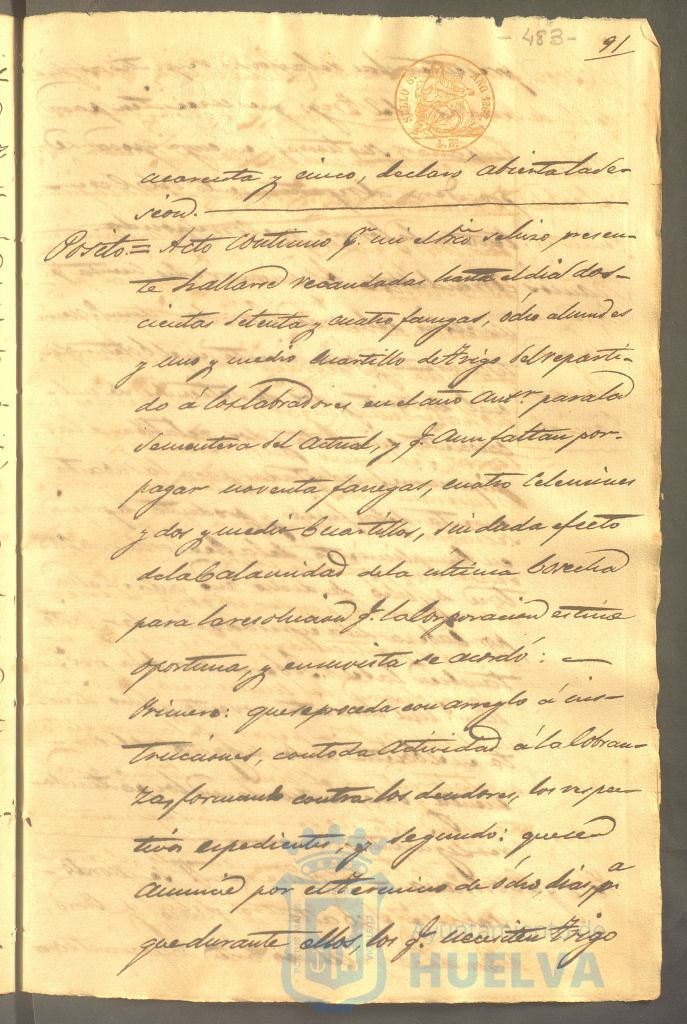 - 483 -
91
SELLO 6º AÑO 186
cuarenta y cinco, declaró abierta la se-
sion.
Posito = Acto continuo pr. mi el Srio se hizo presen-
te hallarse recaudadas hasta el dia dos-
cientas setenta y cuatro fanegas, ocho almudes
y uno y medio cuartillo de trigo del reparti-
do á los labradores en el año antr. para la
sementera del actual, y q. aun faltan por
pagar noventa fanegas, cuatro celemines
y dos y medio cuartillos, sin duda efecto
de la calamidad de la ultima cosecha
para la resolucion q. la Corporacion estime
oportuna, y en su vista se acordó:
Primero: que se proceda con arreglo á ins-
trucciones, con toda actividad á la cobran-
za, formando contra los deudores, los respec-
tivos espedientes, y segundo: que se
anuncie por el termino de ocho dias pa
que durante ellos, los q. necesiten trigo
Ayuntamiento de
HUELVA